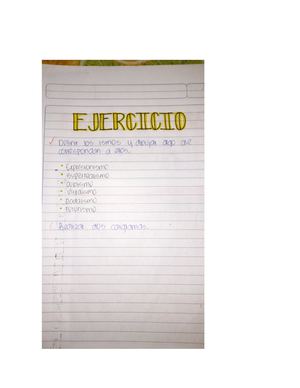 EJERCICIO
Definir los ismos y dibujar algo que
correspondan a ellos.
expresionismo
surrealismo
cubismo
dadaismo
futurismo
Realizar dos caligramas.